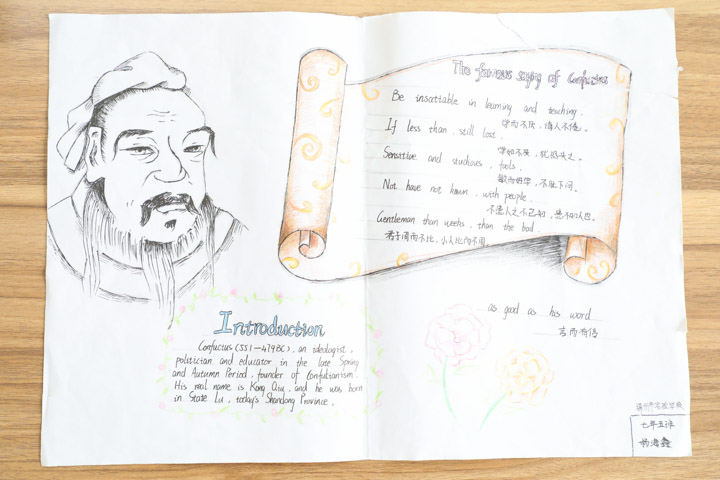 The famous saying of Confucius
Be insatiable in learning and teaching.
学而不厌，诲人不倦。
If less than still lost.
学如不及，犹恐失之。
Sensitive and studious, fools.
敏而好学，不耻下问。
Not have not known, with people.
不患人之不己知，患不知人也。
Gentleman than weeks, than the bad.
君子周而不比，小人比而不周。
as good as his word
言而有信
Introduction
Confucius (551—479BC), an ideologist,
politician and educator in the late Spring
and Autumn Period, founder of Confutianism.
His real name is Kong Qiu, and he was born
in State Lu, today's Shandong Province.
七年五班